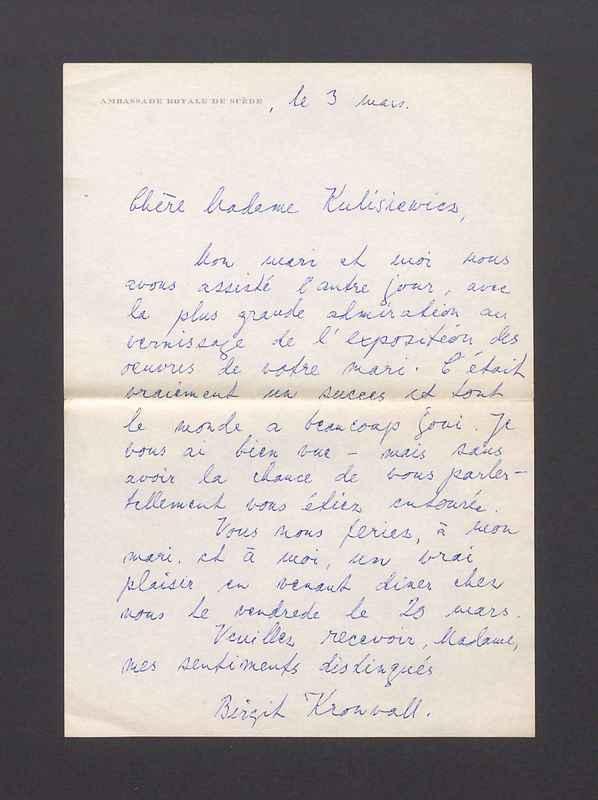 AMBASSADE ROYALE DE SUÈDE, le 3 mars.
Chère Madame Kulisiewicz,
Mon mari et moi nous
avons assisté l'autre jour, avec
la plus grande admiration au
vernissage de l'exposition des
oeuvres de votre mari. C'était
vraiment un succes et tout
le monde a beaucoup joui. Je
vous ai bien vue – mais sans
avoir la chance de vous parler –
tellement vous étiez entourée.
Vous nous feriez, à mon
mari et à moi, un vrai
plaisir en venant diner chez
nous le vendrede le 20 mars.
Veuillez recevoir, Madame,
mes sentiments distingués
Birgit Kronvall.